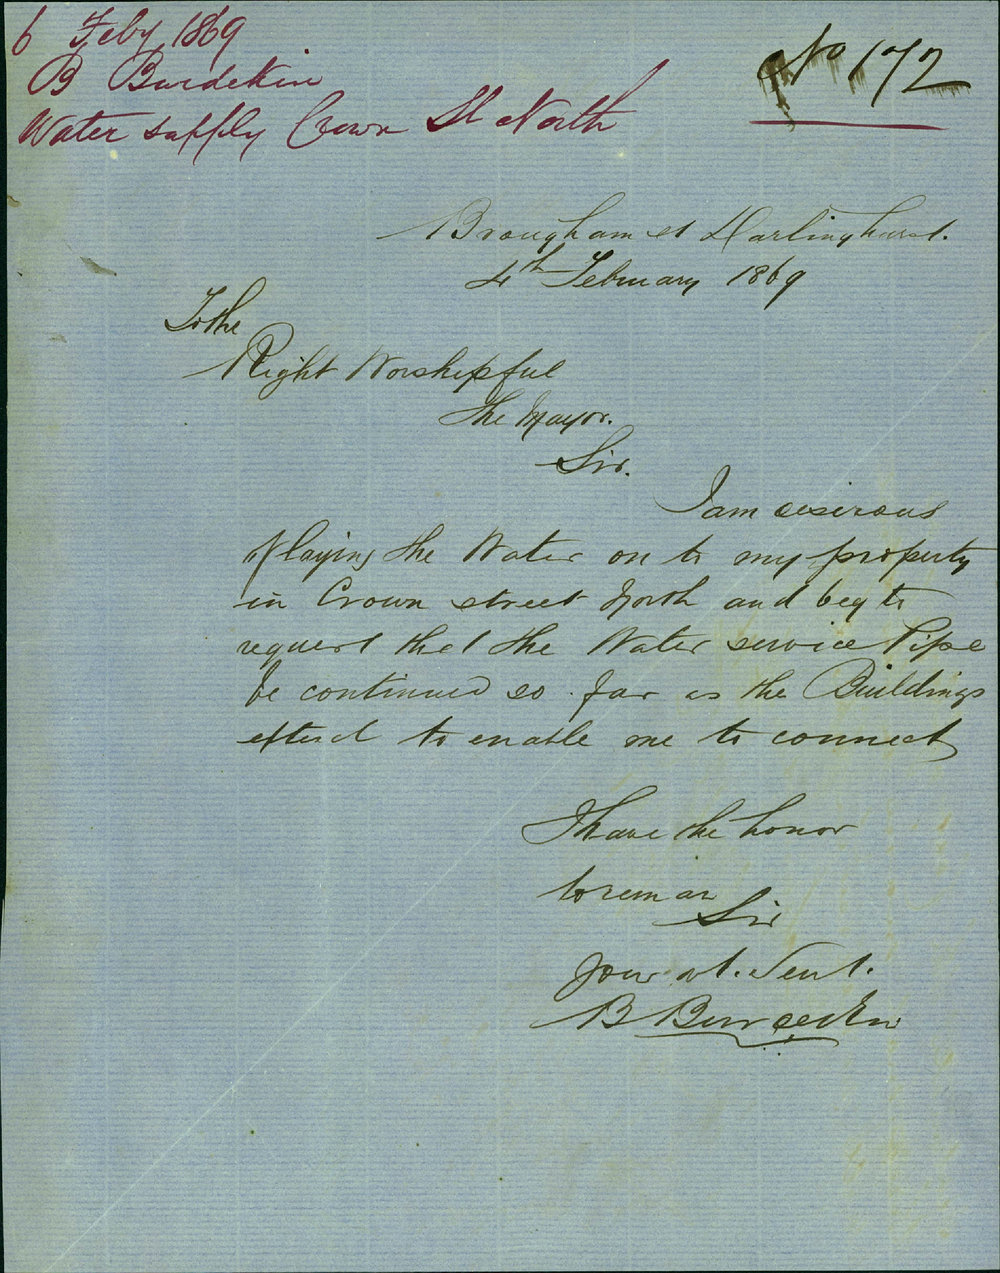 6 Feby 1869
B Burdekin
Water supply Crown St North
No 172
Brougham st Darlinghurst.
4th February 1869
To the
Right Worshipful
The Mayor.
Sir.
I am desirous
of laying the Water on to my property
in Crown street North and beg to
request that the Water service Pipe
be continued so far as the Buildings
extend to enable me to connect
I have the honor
to remain
Sir
Your obt. Servt.
B Burdekin